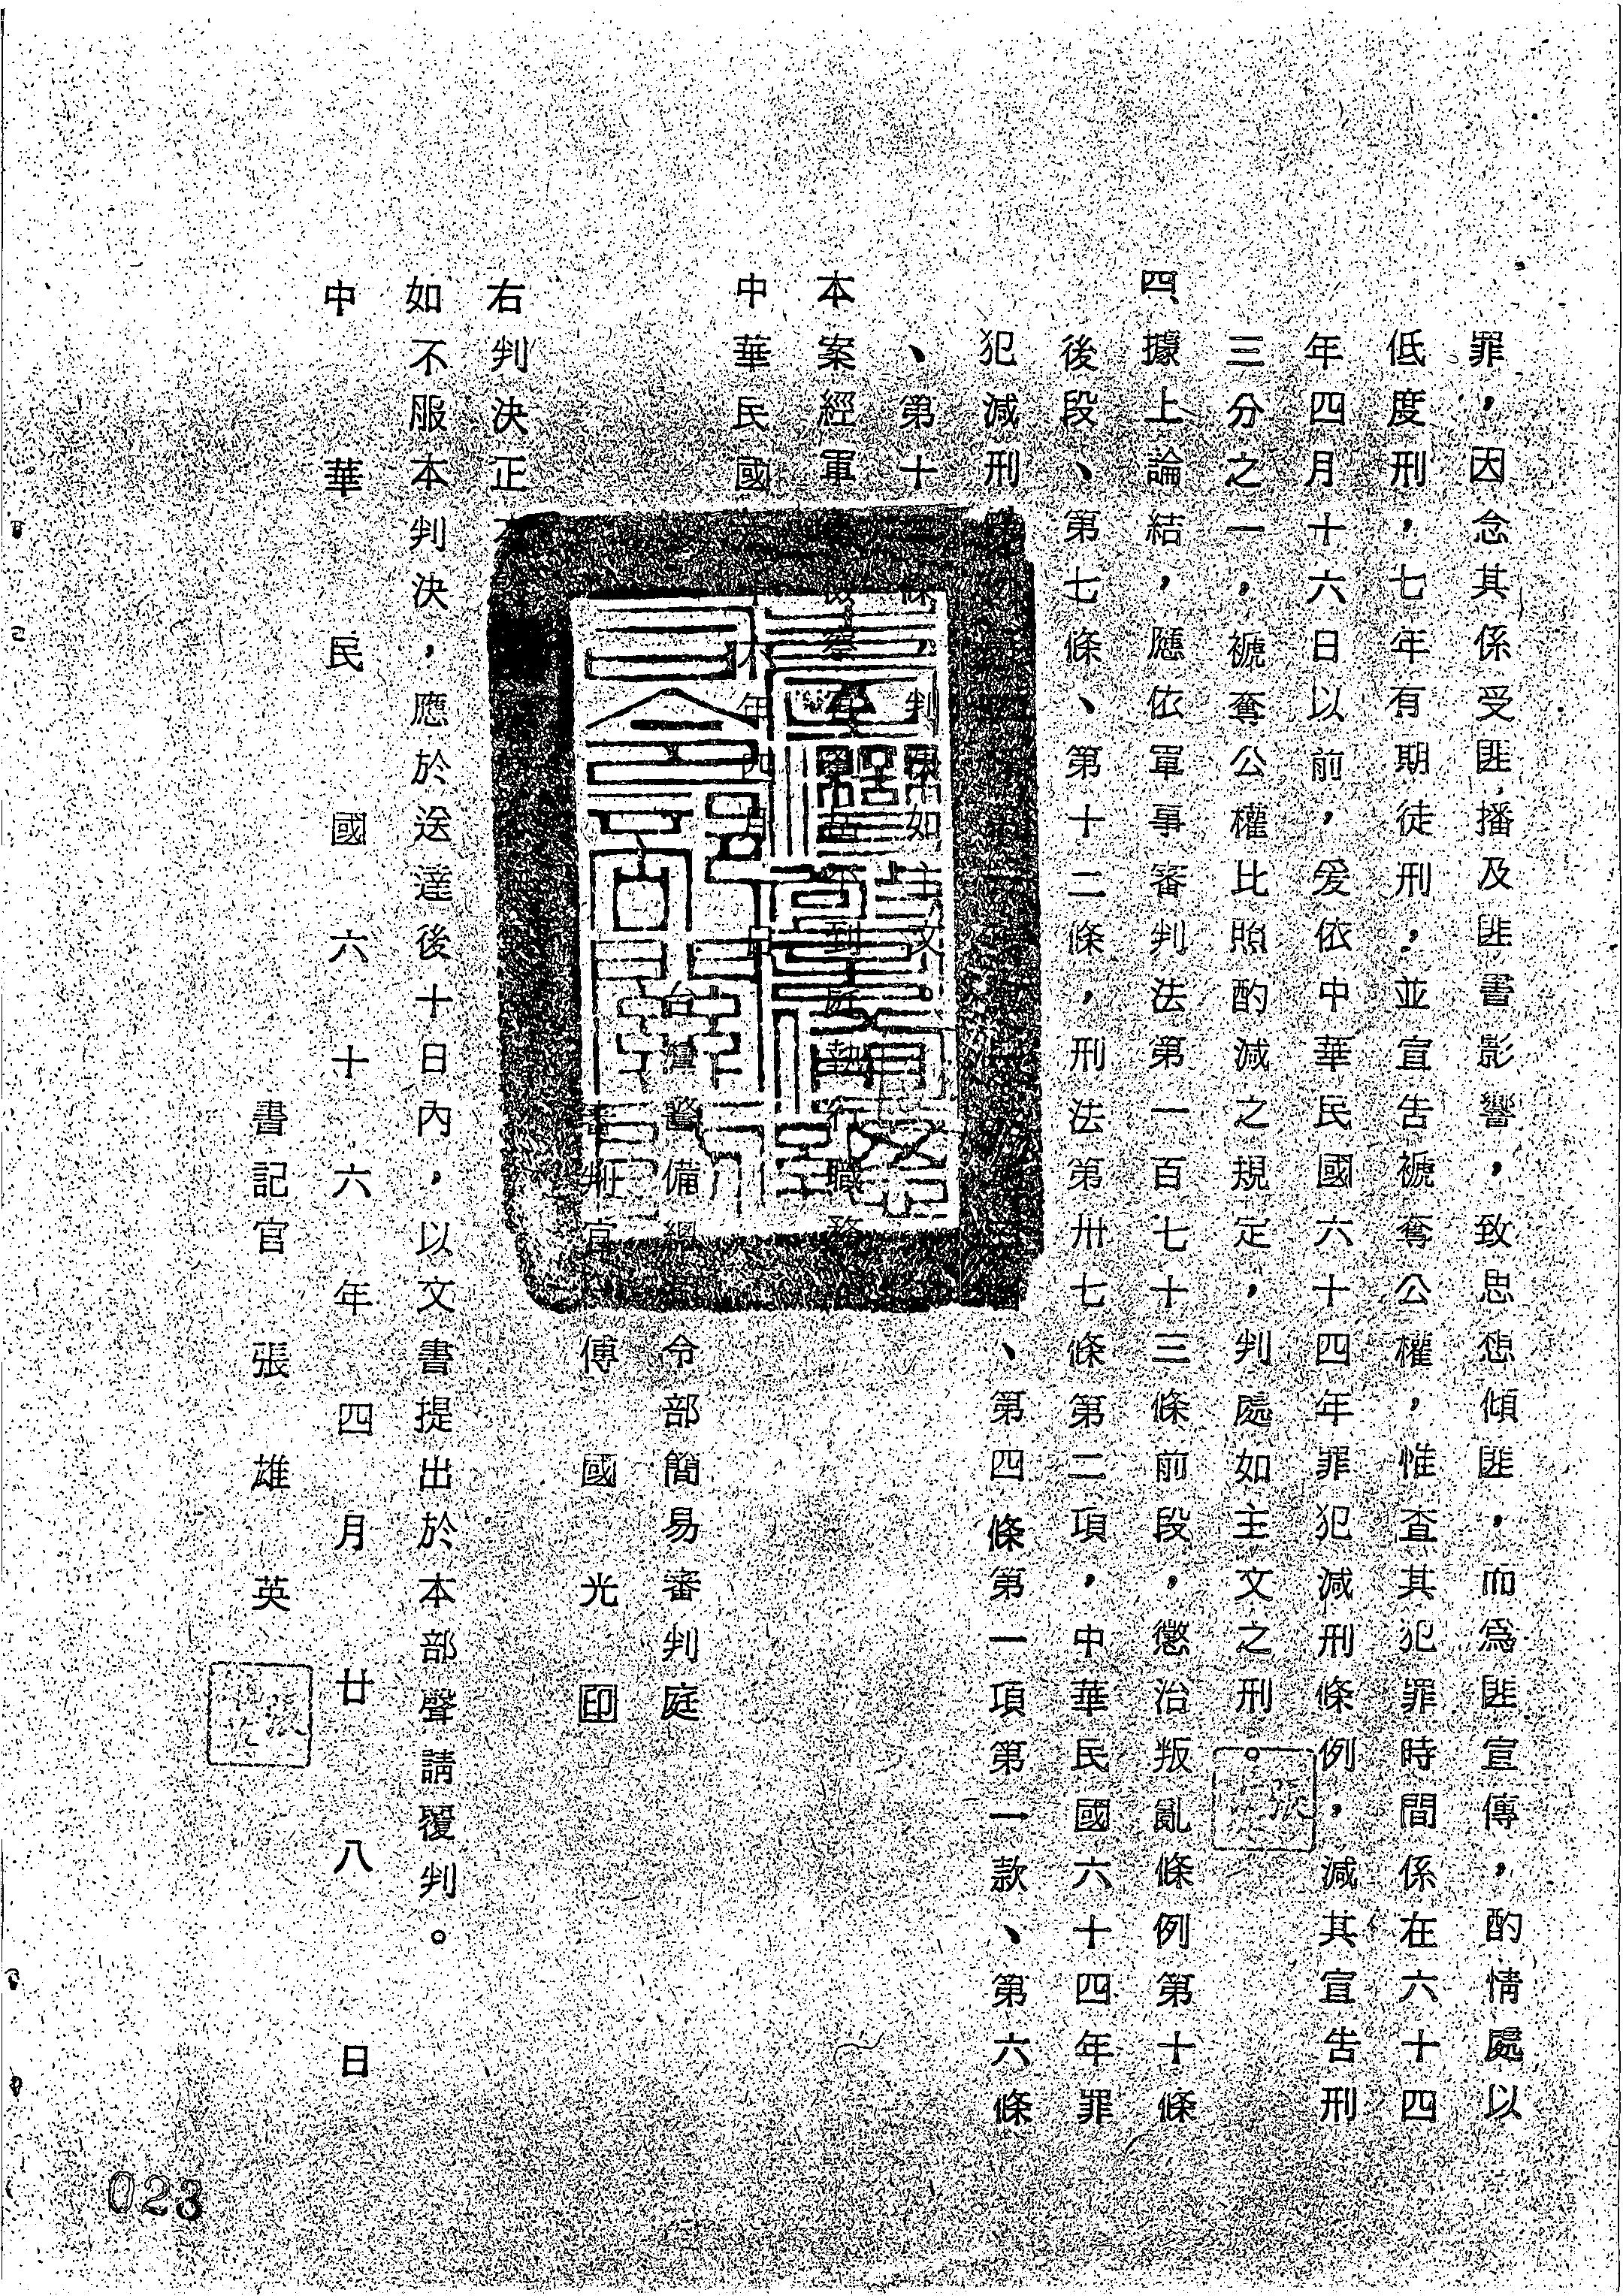 罪，因念其係受匪播及匪書影響，致思想傾匪，而為匪宣傳，酌情處以
低度刑，七年有期徒刑，並宣告褫奪公權，惟查其犯罪時間係在六十四
年四月十六日以前，爰依中華民國六十四年罪犯減刑條例，減其宣告刑
三分之一，褫奪公權比照酌減之規定，判處如主文之刑。
四、據上論結，應依軍事審判法第一百七十三條前段，懲治叛亂條例第十條
後段、第七條、第十二條，刑法第卅七條第二項，中華民國六十四年罪
犯減刑、第四條第一項第一款、第六條
、第十條，判決如主文。
本案經軍事檢察官到庭執行職務
中華民國六十六年四月日
台灣警備總司令部簡易審判庭
審判官傅國光印
右判決正本
如不服本判決，應於送達後十日內，以文書提出於本部聲請覆判。
中華民國六十六年四月廿八日
書記官張雄英
023